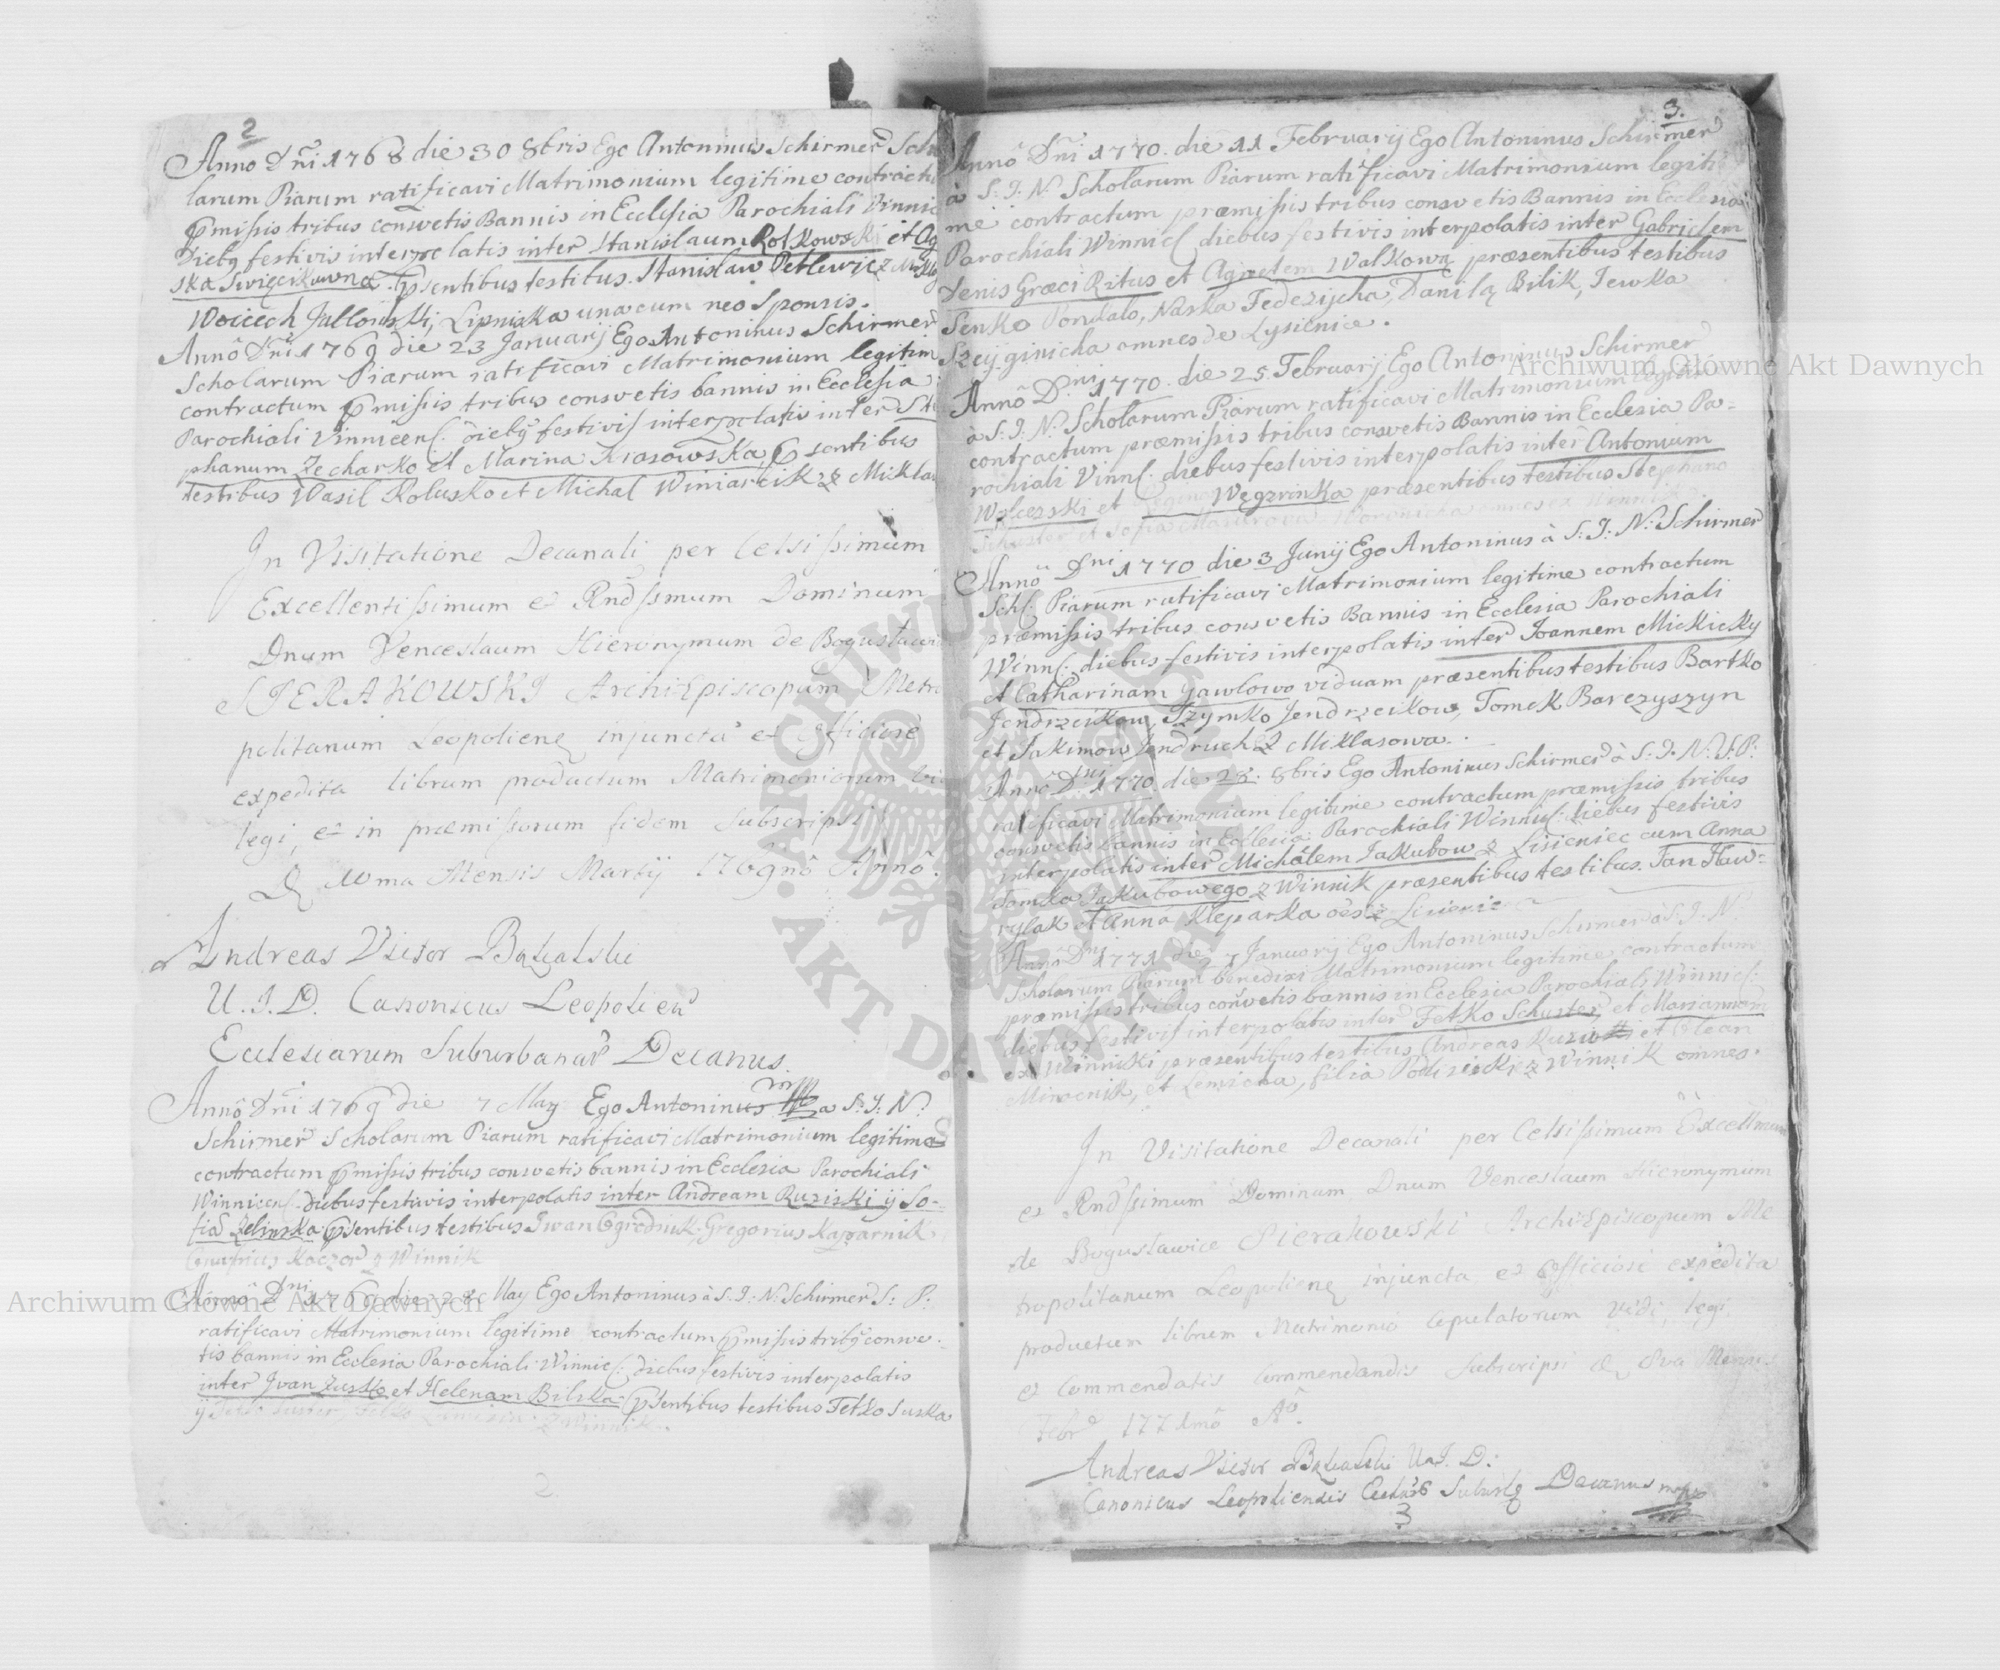 2
Anno Dñi 1768 die 30 8bris Ego Antoninus Schirmer Scho
larum Piarum ratificavi Matrimonium legitime contractu
pmissis tribus consvetis Bannis in Ecclesia Parochiali Vinnic
Dieby festivis interpolatis inter Stanislaum Rolkowski et Ag
ska Swięcikowna psentibus testibus. Stanislaw Petlewicz
Woicech Jallonski, Lipnska una cum neo Sponsis.
Annô Dñi 1769 die 23 Januarij Ego Antoninus Schirmer
Scholarum Piarum ratificavi Matrimonium legitim
contractum pmissis tribus consvetis bannis in Ecclesia
Parochiali Vinnicens: dieby festivis interpolatis inter Ste
phanum Zecharko et Marina Krasowska psentibus
testibus Wasil Kolusko et Michal Winiarcik z Mikla
In Visitatione Decanali per Celsissimum
Excellentissimum et Rndssmum Dominum
Dnum Venceslaum Hieronymum de Bogusławi
SIERAKOWSKI Archi-Episcopum Metro
politanum Leopoliens injuncta et officiose
expedita librum productum Matrimoniorum
legi, et in præmissorum fidem subscripsi
D ma Mensis Martij 1769nô Annô.
Andreas Victor
U. I. D. Canonicus Leopolien
Ecclesiarum Suburbanar Decanus.
Annô Dñi 1769 die 7 May Ego Antoninus a S: J: N:
Schirmer Scholarum Piarum ratificavi Matrimonium legitime
contractum pmissis tribus consvetis bannis in Ecclesia Parochiali
Winnicens: diebus festivis interpolatis inter Andream Ruziski ij So-
fia Zelinska psentibus testibus Iwan Ogrodnik, Gregorius Kaparnik
Onufrius Kaczor z Winnik
Annô Dni 1769 die 28 May Ego Antoninus à S: J: N: Schirmer S: P:
ratificavi Matrimonium legitime contractum pmissis triby conswe-
tis bannis in Ecclesia Parochiali Winnic: diebus festivis interpolatis
inter Jvan Zusko et Helenam Bilska psentibus testibus Fetko Suska
z Winnik.
2
3.
Annô Dñi 1770. die 11 Februarij Ego Antoninus Schirmer
à S. J. N: Scholarum Piarum ratificavi Matrimonium legiti
me contractum præmissis tribus consvetis Bannis in Ecclesia
Parochiali Winnics: diebus festivis interpolatis inter Gabrielem
Denis Græci Ritus et Agnetem Walkowa præsentibus testibus
Senko Pondalo, Naska Federijcha, Danilą Bilik, Jewka
Szeijginicha omnes de Lysienice.
Annô Dni 1770. die 25 Februarij Ego Antoninus Schirmer
à S: J: N: Scholarum Piarum ratificavi Matrimonium legitime
contractum præmissis tribus consvetis Bannis in Ecclesia Pa=
rochiali Vinns: diebus festivis interpolatis inter Antonium
Walceski et Regina Węgrzinka præsentibus testibus Stephano
Schuster et Sofia
Annô Dni 1770 die 3 Junij Ego Antoninus à S: J: N: Schirmer
Schl: Piarum ratificavi Matrimonium legitime contractum
præmissis tribus consvetis Bannis in Ecclesia Parochiali
Winns: diebus festivis interpolatis inter Joannem Mickicky
et Catharinam Gawlowo viduam præsentibus testibus Bartko
Jendrzeikow, Szymko Jendrzeikow, Tomek Barczyszyn
et Jakimow Jendruch z Miklasowa.
Annô Dni 1770. die 28. 8bris Ego Antoninus Schirmer à S. J. N: S. P:
ratificavi Matrimonium legitime contractum præmissis tribus
consvetis bannis in Ecclesia: Parochiali Winnics: diebus festivis
interpolatis inter Michälem Jakubow z Lisieniec cum Anna
Tomka Jakubowego z Winnik præsentibus testibus. Jan Haw=
rylak et Anna Kleparka oes z Lisienic
Annô Dni 1771 die 7 Januarij Ego Antoninus Schirmer à S: J: N:
Scholarum Piarum benedixi Matrimonium legitime contractum
præmissis tribus consvetis bannis in Ecclesia Parochiali Winnics:
diebus festivis interpolatis inter Fetko Schuster et Mariannam
ex Winniki præsentibus testibus Andreas et Olean
Mirocnik, et Lemicha, filia z Winnik omnes.
In Visitatione Decanali per Celsissimum Excellmum
et Rndssimum Dominum Dnum Venceslaum Hieronymum
de Bogusławice Sierakowski Archi-Episcopum Me
tropolitanum Leopoliens injuncta et officiose expedita
productum librum Matrimonio Copulatorum vidi, legi
et Commendatis Commendandis subscripsi D 8va Mensis
Febr 1771mô Aô.
Andreas Victor U. I. D:
Canonicus Leopoliensis Decanus mpp
3
Archiwum Główne Akt Dawnych
Archiwum Główne Akt Dawnych
ARCHIWUM GŁÓWNE AKT DAWNYCH